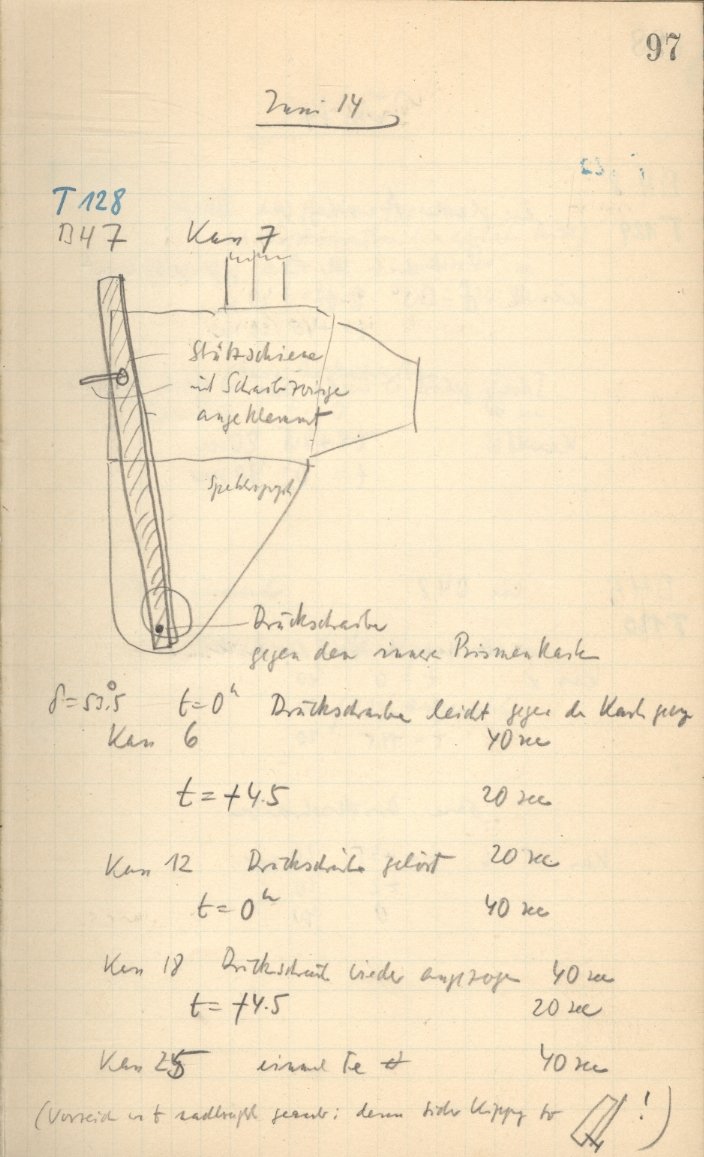 97
Juni 14
T 128
B47 Kass 7
Stützschiene
mit Schraubzwinge
angeklemmt
Druckschraube
gegen den innern Prismenkasten
δ = 53°.5 t = 0ʰ Druckschraube leicht gegen den Kasten
Kass 6 40 sec
t = +4.5 20 sec
Kass 12 Druckschraube gelöst 20 sec
t = 0ʰ 40 sec
Kass 18 Druckschraube wieder angezogen 40 sec
t = +4.5 20 sec
Kass 25 einmal Fe 40 sec
!